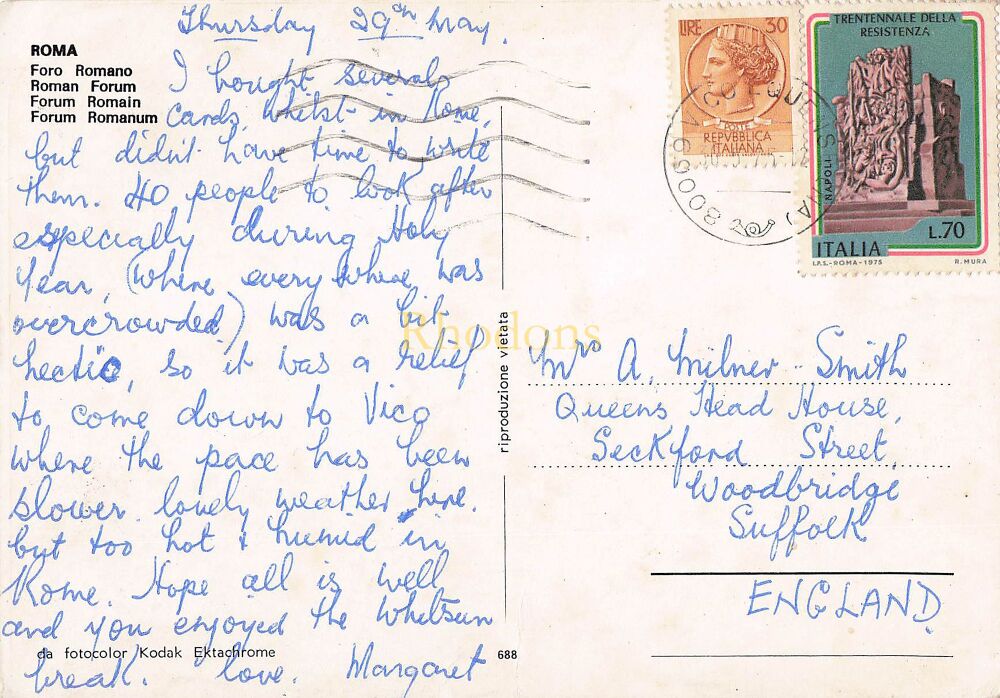 Thursday 29th May.
ROMA
Foro Romano
Roman Forum
Forum Romain
Forum Romanum
I bought several
cards, whilst in Rome,
but didn't have time to write
them. 40 people to look after
especially during Holy
Year, (where everywhere was
overcrowded) was a bit
hectic, so it was a relief
to come down to Vico
where the pace has been
slower. lovely weather here.
but too hot & humid in
Rome. Hope all is well
and you enjoyed the Whitsun
break. love. Margaret
da fotocolor Kodak Ektachrome
688
riproduzione vietata
Rhodons
LIRE 30
POSTE
REPVBBLICA
ITALIANA
TRENTENNALE DELLA
RESISTENZA
NAPOLI
ITALIA
L.70
I.P.S.-ROMA-1975
R. MURA
80069 VICO EQUENSE (NA)
Mrs A. Milner-Smith
Queens Head House,
Seckford Street,
Woodbridge
Suffolk
ENGLAND